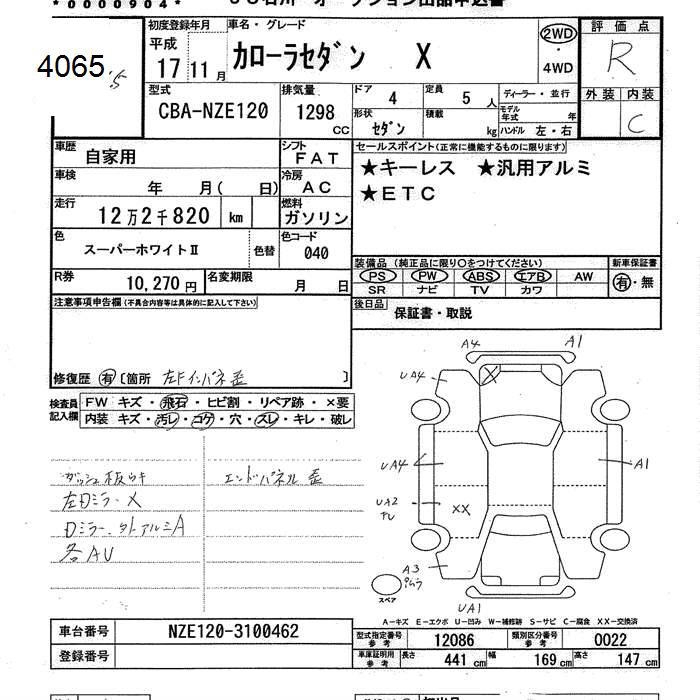 *0000904*
4065
初度登録年月
平成
17 11 月
車名・グレード
カローラセダン X
2WD
・
4WD
評価点
R
外装 内装
C
型式
CBA-NZE120
排気量
1298
CC
ドア
4
定員
5 人
形状
セダン
積載
kg
ディーラー・並行
モデル年式 年
ハンドル 左・右
車歴
自家用
シフト
FAT
車検
年 月( 日)
冷房
AC
走行
12万2千820 km
燃料
ガソリン
色
スーパーホワイトⅡ
色替
色コード
040
R券
10,270円
名変期限
月 日
セールスポイント(正常に機能するものに限ります)
★キーレス ★汎用アルミ
★ETC
装備品 (純正品に限り○をつけてください)
新車保証書
PS PW ABS エアB AW
有・無
SR ナビ TV カワ
後日品
保証書・取説
注意事項申告欄(不具合内容等は具体的に記入して下さい)
修復歴 有 〔箇所 左Fインパネ歪 〕
検査員記入欄
FW キズ・飛石・ヒビ割・リペア跡・×要
内装 キズ・汚レ・コゲ・穴・スレ・キレ・破レ
ダッシュ板ウキ
エンドパネル歪
左Dミラー X
Dミラー、外アルミA
各AU
A4
A1
UA4
X
UA4
A1
UA2
XX
A3
UA1
スペア
A-キズ E-エクボ U-凹み W-補修跡 S-サビ C-腐食 XX-交換済
車台番号
NZE120-3100462
登録番号
型式指定番号 参考
12086
類別区分番号 参考
0022
車庫証明用 参考
長さ
441 cm
幅
169 cm
高さ
147 cm